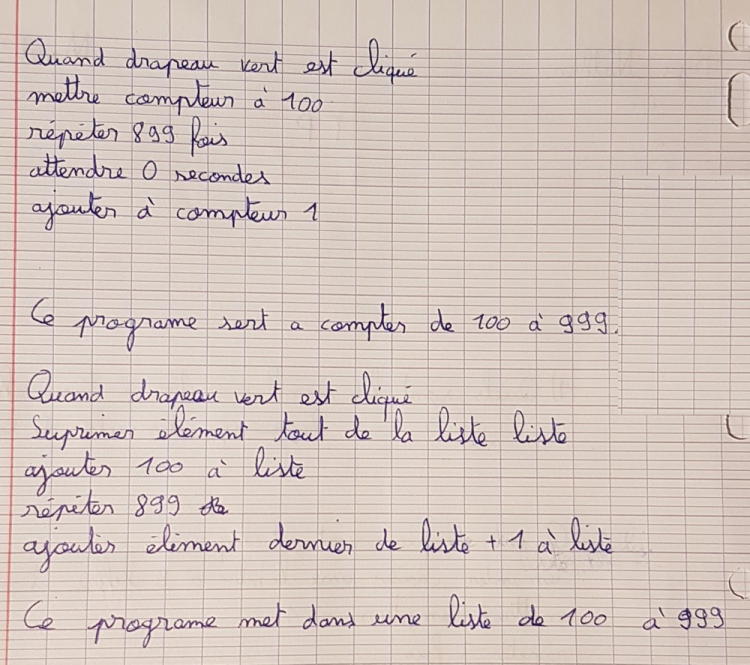 Quand drapeau vert est cliqué
mettre compteur à 100
répéter 899 fois
attendre 0 secondes
ajouter à compteur 1
Ce programe sert a compter de 100 à 999.
Quand drapeau vert est cliqué
Suprimer élément tout de la liste liste
ajouter 100 à liste
répéter 899
ajouter élément dernier de liste + 1 à liste
Ce programe met dans une liste de 100 à 999